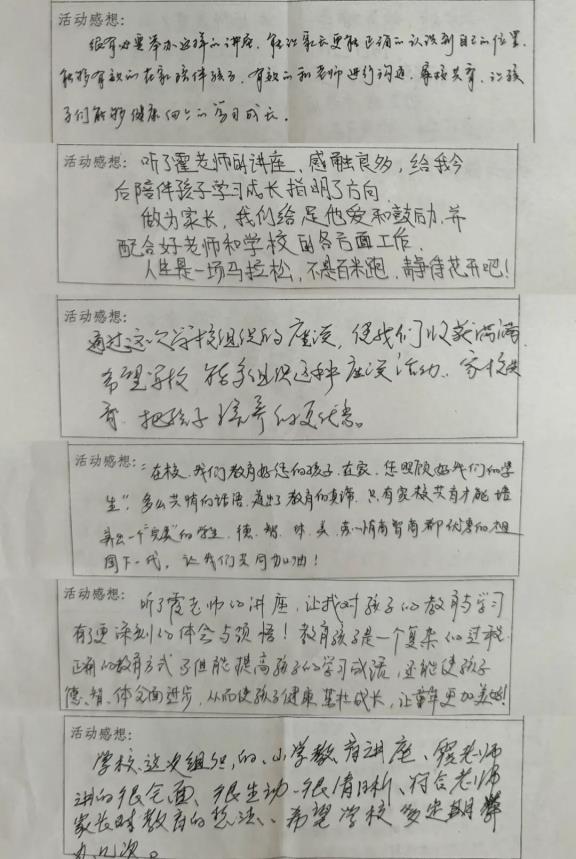 活动感想:
很有必要举办这样的讲座，能让家长更能正确的认识到自己的位置
能够有效的在家陪伴孩子，有效的和老师进行沟通，家校共育，让孩
子们能够健康向上的学习成长。
活动感想:
听了霍老师的讲座，感触良多，给我今
后陪伴孩子学习成长指明了方向
做为家长，我们给足他爱和鼓励，并
配合好老师和学校的各方面工作，
人生是一场马拉松，不是百米跑，静待花开吧!
活动感想:
通过这次学校组织的座谈，使我们收获满满，
希望学校能多组织这种座谈活动，家校共
育，把孩子培养的更优秀。
活动感想:
“在校，我们教育好您的孩子，在家，您照顾好我们的学
生”，多么共情的话语，道出了教育的真谛，只有家校共育才能培
养出一个“完美”的学生，德、智、体、美、劳、情商智商都优秀的祖
国下一代，让我们共同加油!
活动感想:
听了霍老师的讲座，让我对孩子的教育与学习
有了更深刻的体会与领悟!教育孩子是一个复杂的过程
正确的教育方式不但能提高孩子的学习成绩，还能使孩子
德、智、体全面进步，从而使孩子健康茁壮成长，让章年更加美好!
活动感想:
学校这次组织的、小学教育讲座、霍老师
讲的很全面、很生动、很清晰、符合老师
家长对教育的想法、希望学校多定期举
办几次。